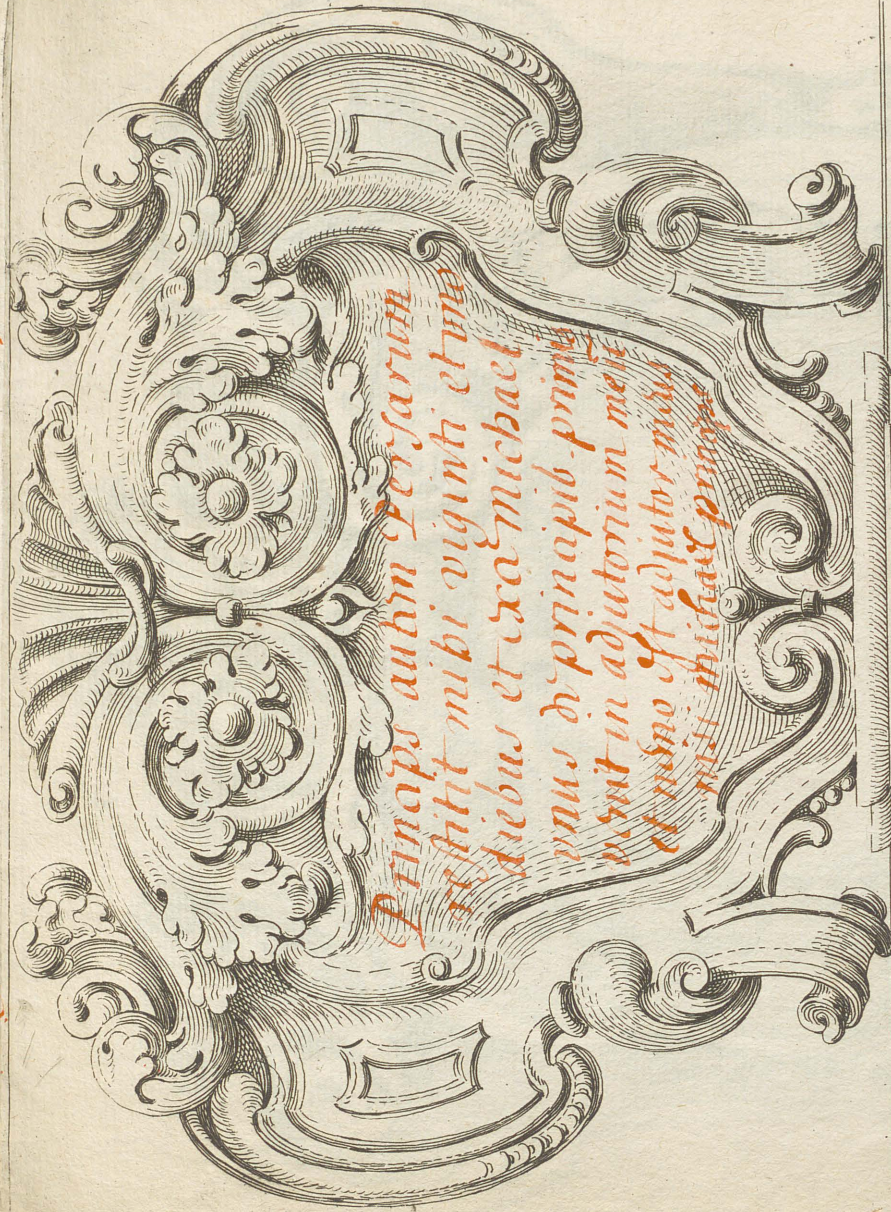 Princeps autem Persarum
restitit mihi viginti et uno
diebus et ecce Michael
unus de principib. primis
venit in adjutorium meū
et nemo est adjutor meus
nisi Michael princeps